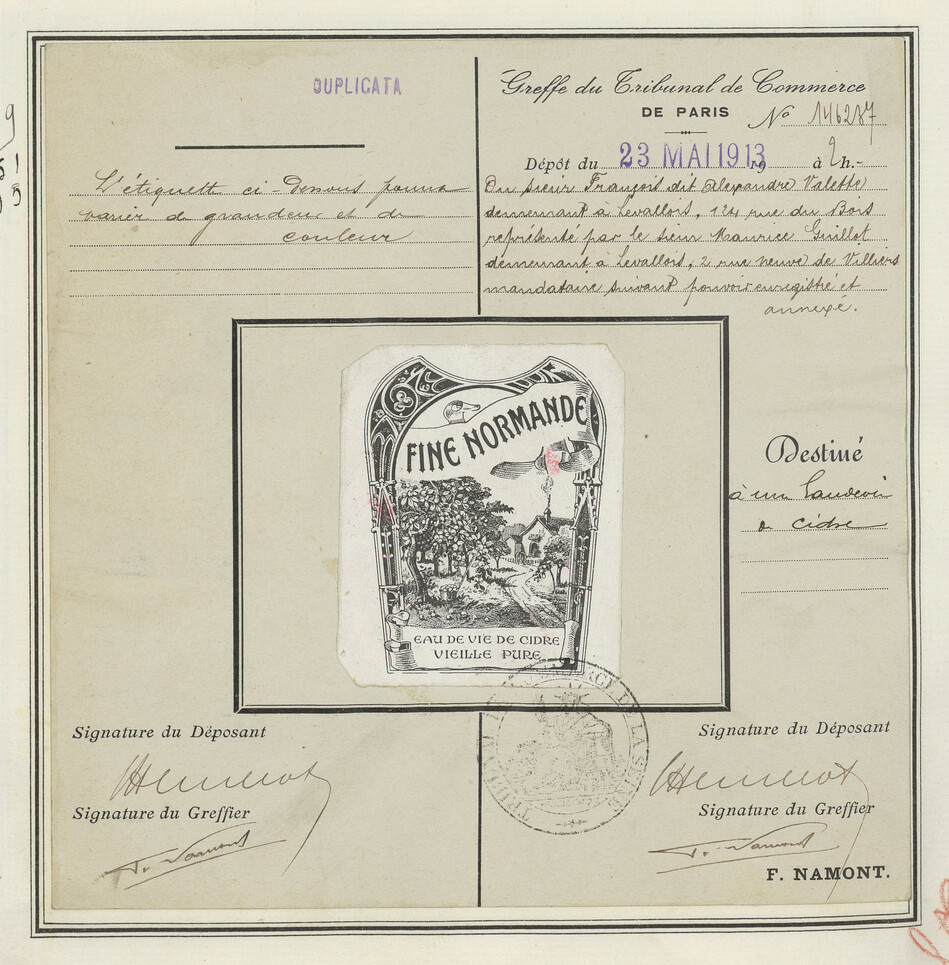 DUPLICATA
L'étiquette ci-dessous pourra
varier de grandeur et de
couleur
Greffe du Tribunal de Commerce
DE PARIS
No 146287
Dépôt du 23 MAI 1913 19 à 2 h.-
Du sieur François dit Alexandre Valette
demeurant à Levallois, 124 rue du Bois
représenté par le sieur Maurice Guillot
demeurant à Levallois, 2 rue neuve de Villiers
mandataire suivant pouvoir enregistré et
annexé.
FINE NORMANDE
EAU DE VIE DE CIDRE
VIEILLE PURE
Destiné
à une eau de vie
de cidre
TRIBUNAL DE COMMERCE DE LA SEINE
Signature du Déposant
Signature du Greffier
F. Namont
Signature du Déposant
Signature du Greffier
F. Namont
F. NAMONT.